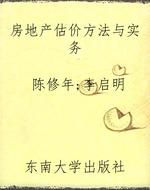 房地产估价方法与实
务
陈修年;李启明
东南大学出版社